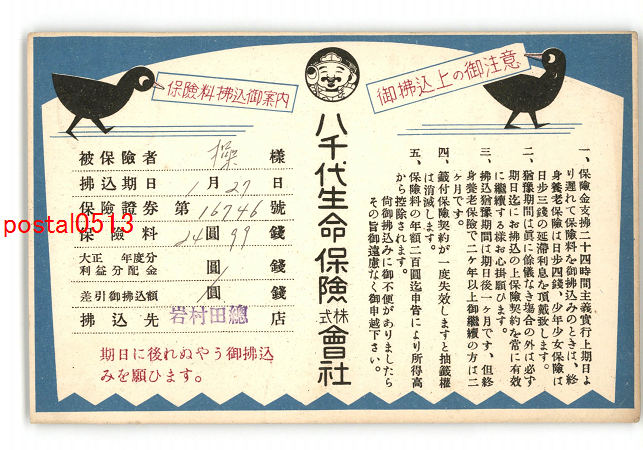 保險料拂込御案内
御拂込上の御注意
一、保險金支拂二十四時間主義實行上期日よ
り遲れて保險料を御拂込みのときは、終
身養老保險は日步四錢、少年少女保險は
日步三錢の延滯利息を頂戴致します。
二、猶豫期間は眞に餘儀なき場合の外は必ず
期日迄にお拂込の上保險契約を常に有效
に繼續する樣お心掛願ひます。
三、拂込猶豫期間は期日後一ヶ月です、但終
身養老保險で二ヶ年以上御繼續の方は二
ヶ月です。
四、籤付保險契約が一度失效しますと抽籤權
は消滅します。
五、保險料の年額二百圓迄申告により所得高
から控除されます。
尙御拂込みに御不便がありましたら
その旨御遠慮なく御申越下さい。
八千代生命保險株式會社
被保險者 樣
拂込期日 1月27日
保險證券 第16746號
保險料 24圓99錢
大正 年度分
利益分配金 圓 錢
差引御拂込額 圓 錢
拂込先 岩村田總 店
期日に後れぬやう御拂込
みを願ひます。
postal0513